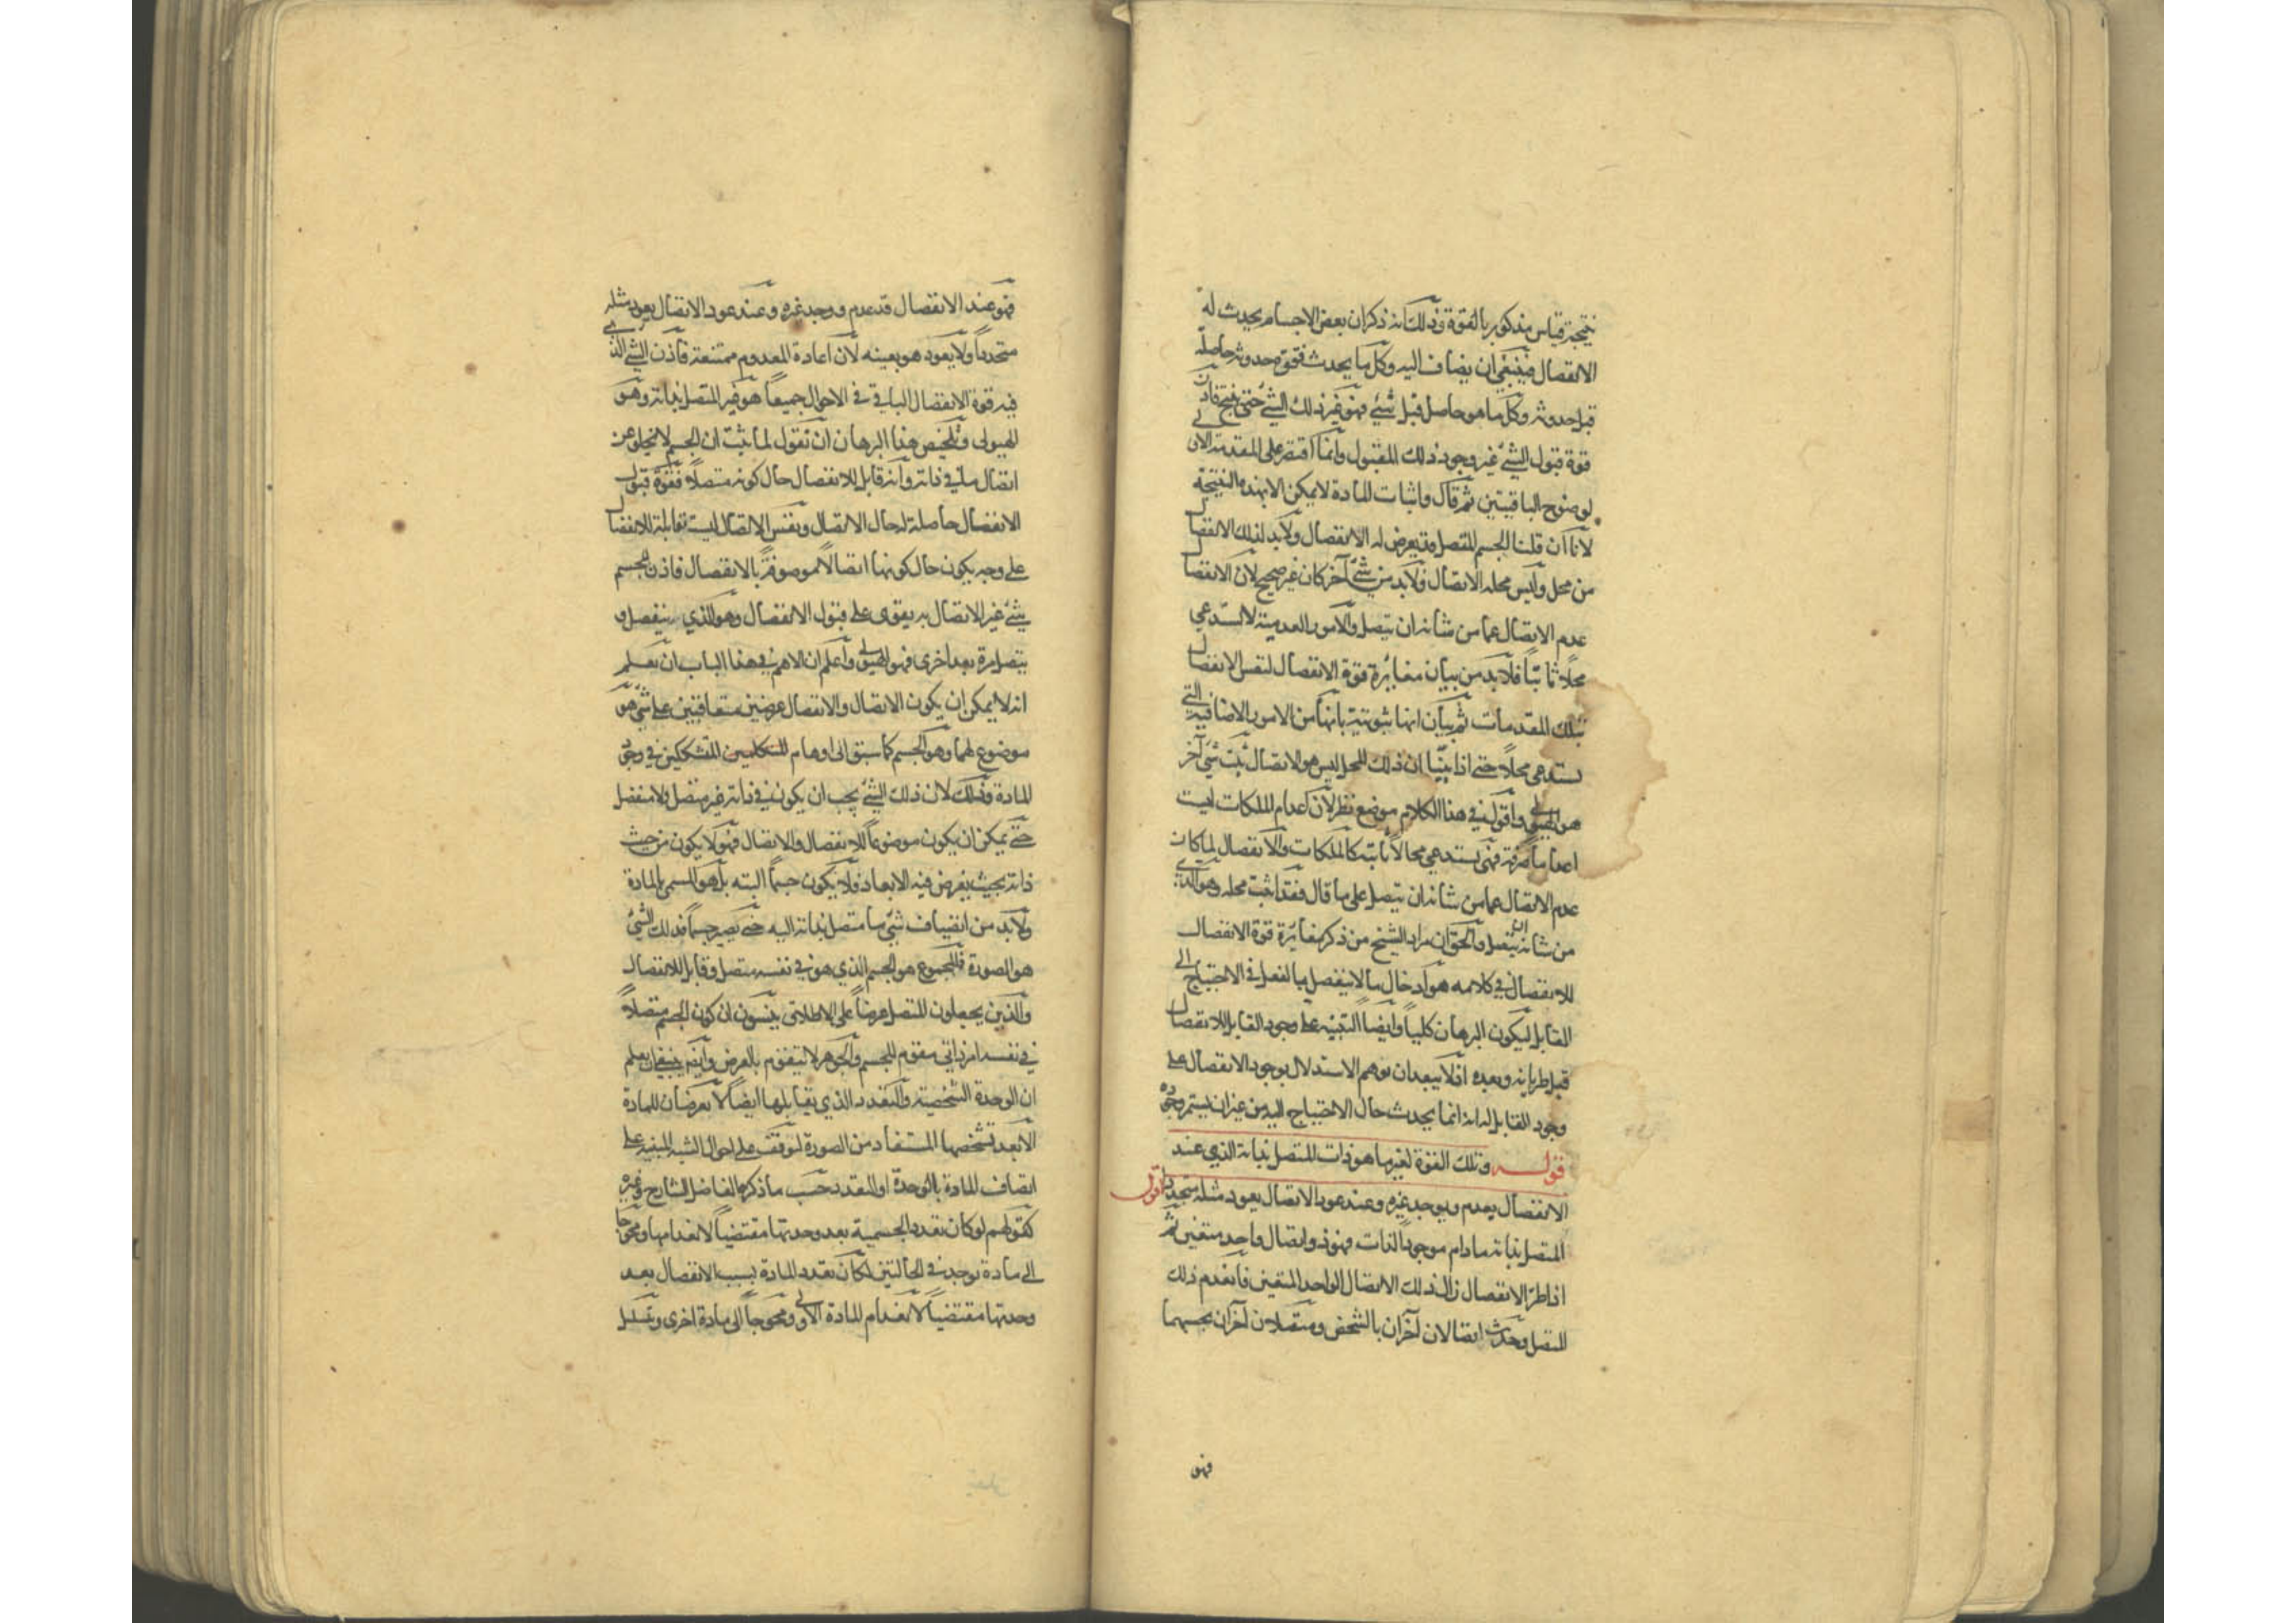 نتيجة قياس مذكور بالقوة وذلك انه ذكر ان بعض الاجسام يحدث له
الانفصال فينبغي ان يضاف اليه وكل ما يحدث فقوة حدوثه حاصلة
قبل حدوثه وكل ما هو حاصل قبل شئ فهو غير ذلك الشئ حتى ينتج فاذن
قوة قبول الشئ غير وجود ذلك المقبول وانما اقتصر على المقدمة الاولى
لوضوح الباقيتين ثم قال واثبات المادة لا يمكن الا بهذه النتيجة
لانا ان قلنا الجسم المتصل قد يعرض له الانفصال ولا بد لذلك الانفصال
من محل وليس محله الاتصال فلا بد من شئ آخر كان غير صحيح لان الانفصال
عدم الاتصال عما من شانه ان يتصل والامور العدمية لا تستدعي
محلا ثابتا فلا بد من بيان مغايرة قوة الانفصال لنفس الانفصال
بتلك المقدمات ثم بيان انها ثبوتية بانها من الامور الاضافية التي
تستدعي محلا حتى اذا بينا ان ذلك المحل ليس هو الاتصال ثبت شئ آخر
هو الهيولى واقول في هذا الكلام موضع نظر لان اعدام الملكات ليست
اعداما صرفة فهي تستدعي محالا ثابتة كالملكات والانفصال لما كان
عدم الاتصال عما من شانه ان يتصل على ما قال فقد اثبت محله وهو الذي
من شانه ان يتصل والحق ان مراد الشيخ من ذكر مغايرة قوة الانفصال
للانفصال في كلامه هو ادخال ما لا ينفصل بالفعل في الاحتياج الى
القابل ليكون البرهان كليا وايضا التنبيه على وجود القابل للانفصال
قبل طريانه وبعده اذ لا يبعد ان يوهم الاستدلال بوجود الانفصال على
وجود القابل له انه انما يحدث حال الاحتياج اليه من غير ان يستمر وجوده
قوله وتلك القوة لغير ما هو ذات المتصل بذاته الذي عند
الانفصال يعدم ويوجد غيره وعند عود الاتصال يعود مثله متجددا اقول
المتصل بذاته ما دام موجود الذات فهو ذو اتصال واحد متعين ثم
اذا طرا الانفصال زال ذلك الاتصال الواحد المتعين فانعدم ذلك
المتصل وحدث اتصالان آخران بالشخص ومتصلان آخران بحسبهما
فهو
فهو عند الانفصال قد عدم ووجد غيره وعند عود الاتصال يعود مثله
متجددا ولا يعود هو بعينه لان اعادة المعدوم ممتنعة فاذن الشئ الذي
فيه قوة الانفصال الباقي في الاحوال جميعا هو غير المتصل بذاته وهو
الهيولى وتلخيص هذا البرهان ان نقول لما ثبت ان الجسم لا يخلو عن
اتصال ما في ذاته وانه قابل للانفصال حال كونه متصلا فقوة قبول
الانفصال حاصلة له حال الاتصال ونفس الاتصال ليست بقابلة للانفصال
على وجه يكون حال كونها اتصالا موصوفة بالانفصال فاذن للجسم
شئ غير الاتصال به يقوى على قبول الانفصال وهو الذي ينفصل و
يتصل مرة بعد اخرى فهو الهيولى واعلم ان الاهم في هذا الباب ان يعلم
انه لا يمكن ان يكون الاتصال والانفصال عرضين متعاقبين على شئ هو
موضوع لهما وهو الجسم كما سبق الى اوهام المتكلمين المتشككين في وجود
المادة وذلك لان ذلك الشئ يجب ان يكون في ذاته غير متصل ولا منفصل
حتى يمكن ان يكون موضوعا للانفصال والاتصال فهو لا يكون من حيث
ذاته بحيث يفرض فيه الابعاد فلا يكون جسما البته بل هو المسمى بالمادة
ولا بد من انضياف شئ ما متصل بذاته اليه حتى يصير جسما فذلك الشئ
هو الصورة فالمجموع هو الجسم الذي هو في نفسه متصل وقابل للانفصال
والذين يجعلون المتصل عرضا على الاطلاق ينسون ان كون الجسم متصلا
في نفسه امر ذاتي مقوم للجسم والجوهر لا يتقوم بالعرض وايضا ينبغي ان يعلم
ان الوحدة الشخصية والتعدد الذي يقابلها ايضا لا يعرضان للمادة
الا بعد تشخصها المستفاد من الصورة ليوقف على احوال الشبه المبنية على
اتصاف المادة بالوحدة او التعدد حسب ما ذكره الفاضل الشارح وغيره
كقولهم لو كان تعدد الجسمية بعد وحدتها مقتضيا لانعدامها ومحوجا
الى مادة توجد في الحالتين لكان تعدد المادة بسبب الانفصال بعد
وحدتها مقتضيا لانعدام المادة الاولى ومحوجا الى مادة اخرى وتسلسل